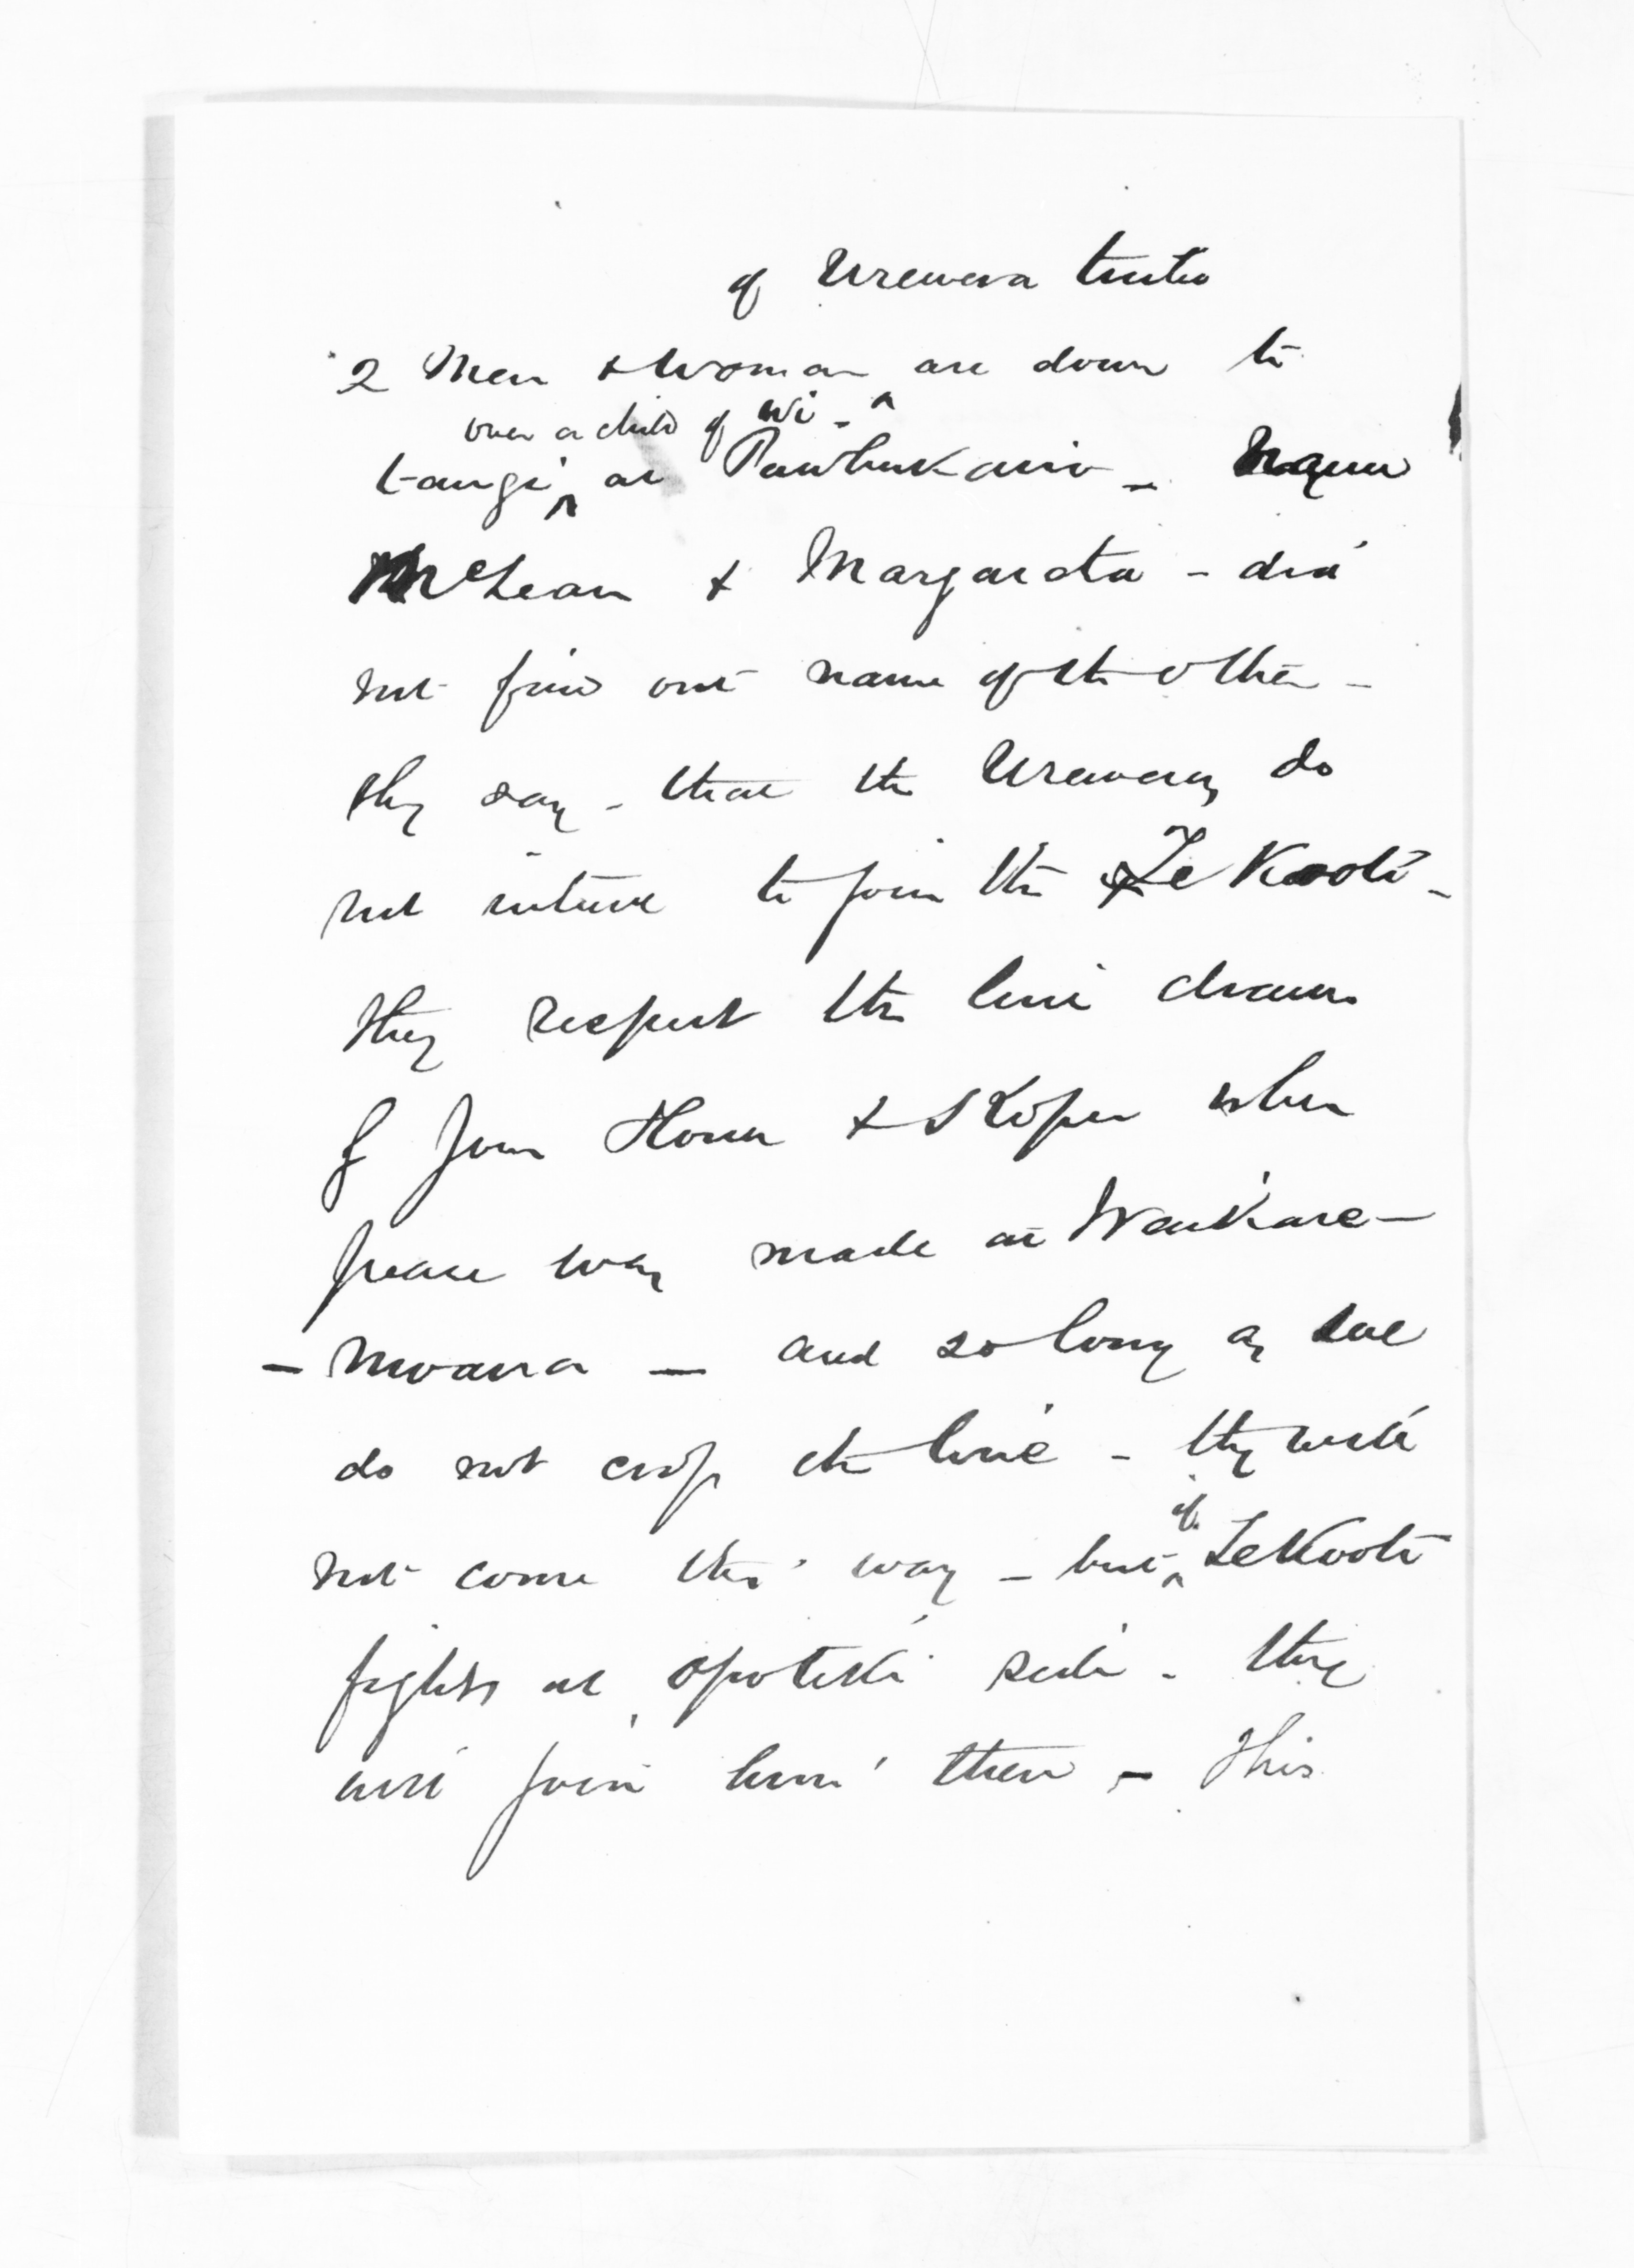 of Urewera tribe
2 Men & Woman are down to
over a child of Wi -
tangi at - Names
McLean & Margareta - did
not find out name of the other -
they say - that the Ureweras do
not intend to join the Te Kooti -
they respect the line drawn
from Hona & Kopu when
peace was made at Waikare -
- Moana - and so long as we
do not cross the line - they will
not come this way - but if TeKooti
fights at Opotiki side - they
will join him then - This